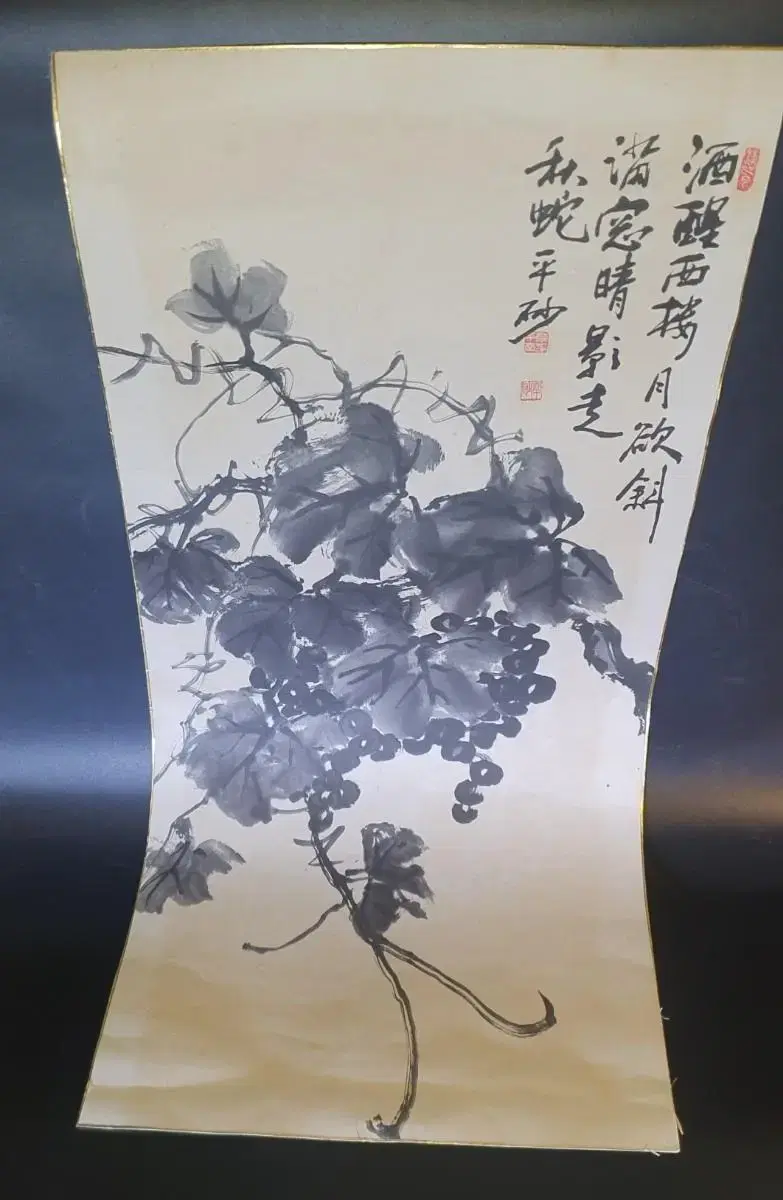 酒醒西楼月欲斜
満窓晴影走
秋蛇 平砂